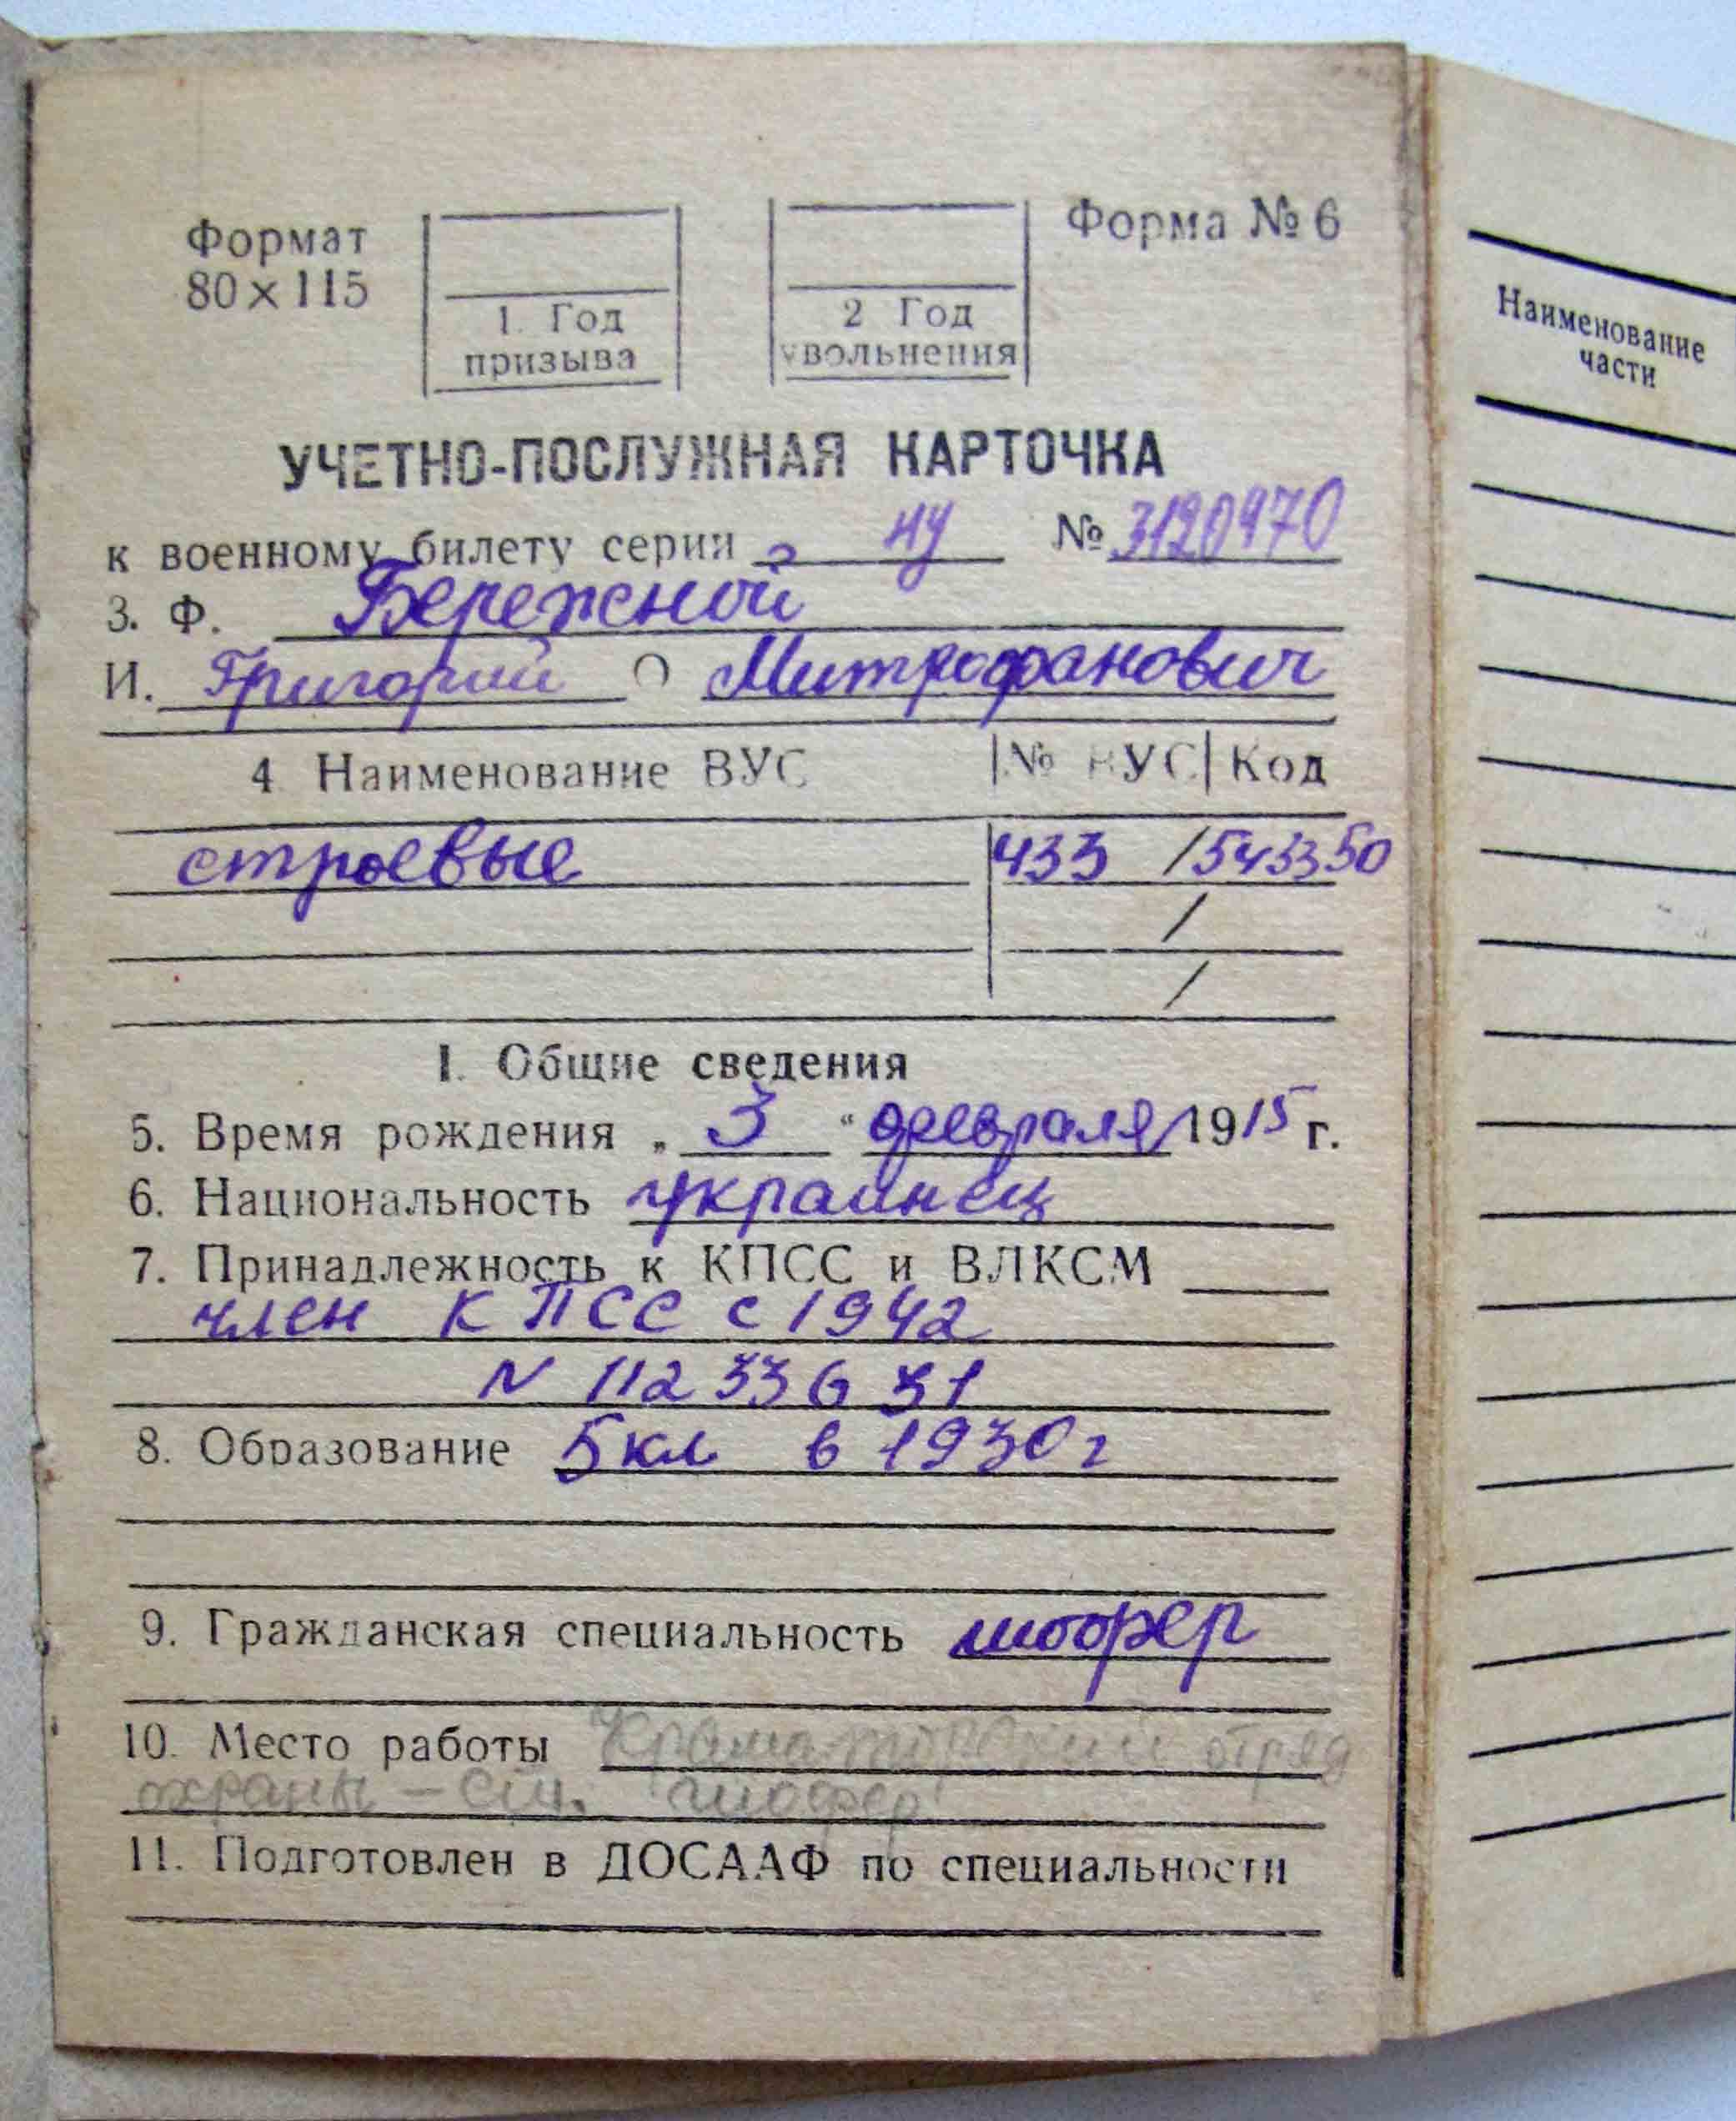 Формат
80×115
1. Год
призыва
2 Год
увольнения
Форма № 6
УЧЕТНО-ПОСЛУЖНАЯ КАРТОЧКА
к военному билету серии НУ № 3120970
3. Ф. Бережной
И. Григорий О Митрофанович
4 Наименование ВУС № ВУС Код
строевые 433 / 543350
/
/
I. Общие сведения
5. Время рождения „ 3 “ февраля 1915 г.
6. Национальность украинец
7. Принадлежность к КПСС и ВЛКСМ
член КПСС с 1942
N 11233631
8. Образование 5 кл в 1930 г
9. Гражданская специальность шофер
10. Место работы Краматорский отряд
охраны – ст. шофер
11. Подготовлен в ДОСААФ по специальности
Наименование
части